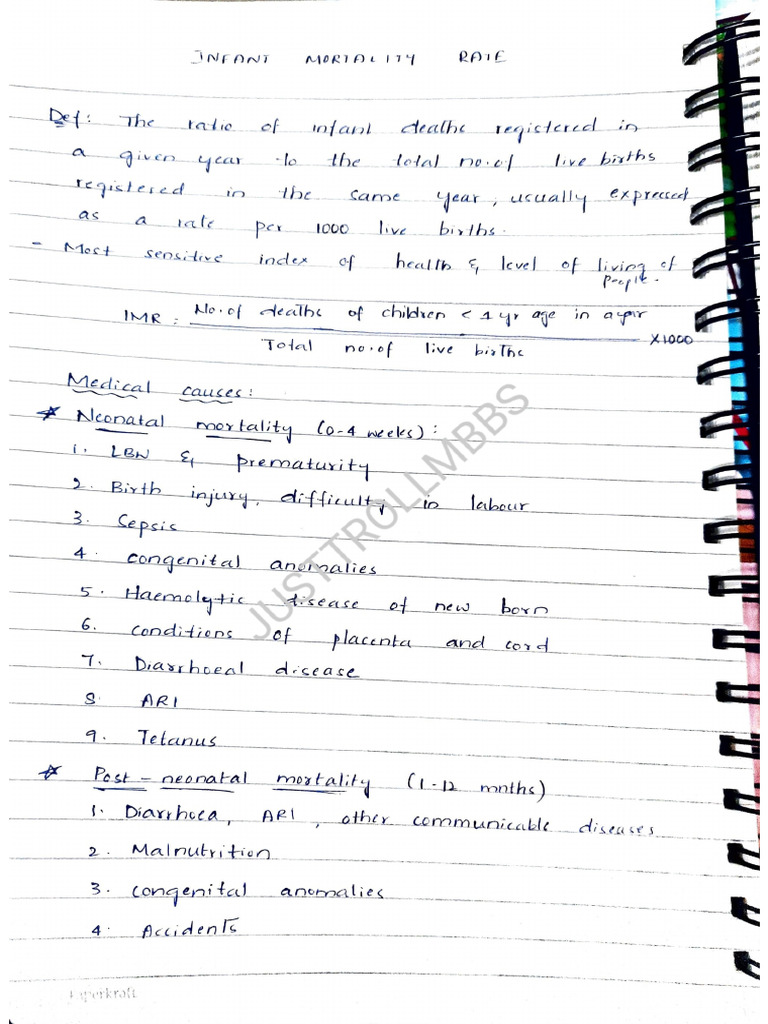 INFANT MORTALITY RATE
Def: The ratio of infant deaths registered in
a given year to the total no.of live births
registered in the same year, usually expressed
as a rate per 1000 live births.
- Most sensitive index of health & level of living of
people.
IMR: No.of deaths of children < 1 yr age in a year
X1000
Total no.of live births
Medical causes:
* Neonatal mortality (0-4 weeks):
1. LBW & prematurity
2. Birth injury, difficulty in labour
3. Sepsis
4. congenital anomalies
5. Haemolytic disease of new born
6. conditions of placenta and cord
7. Diarrhoeal disease
8. ARI
9. Tetanus
* Post-neonatal mortality (1-12 mnths)
1. Diarrhoea, ARI, other communicable diseases
2. Malnutrition
3. congenital anomalies
4. Accidents
JUSTTROLLMBBS
Paperkraft